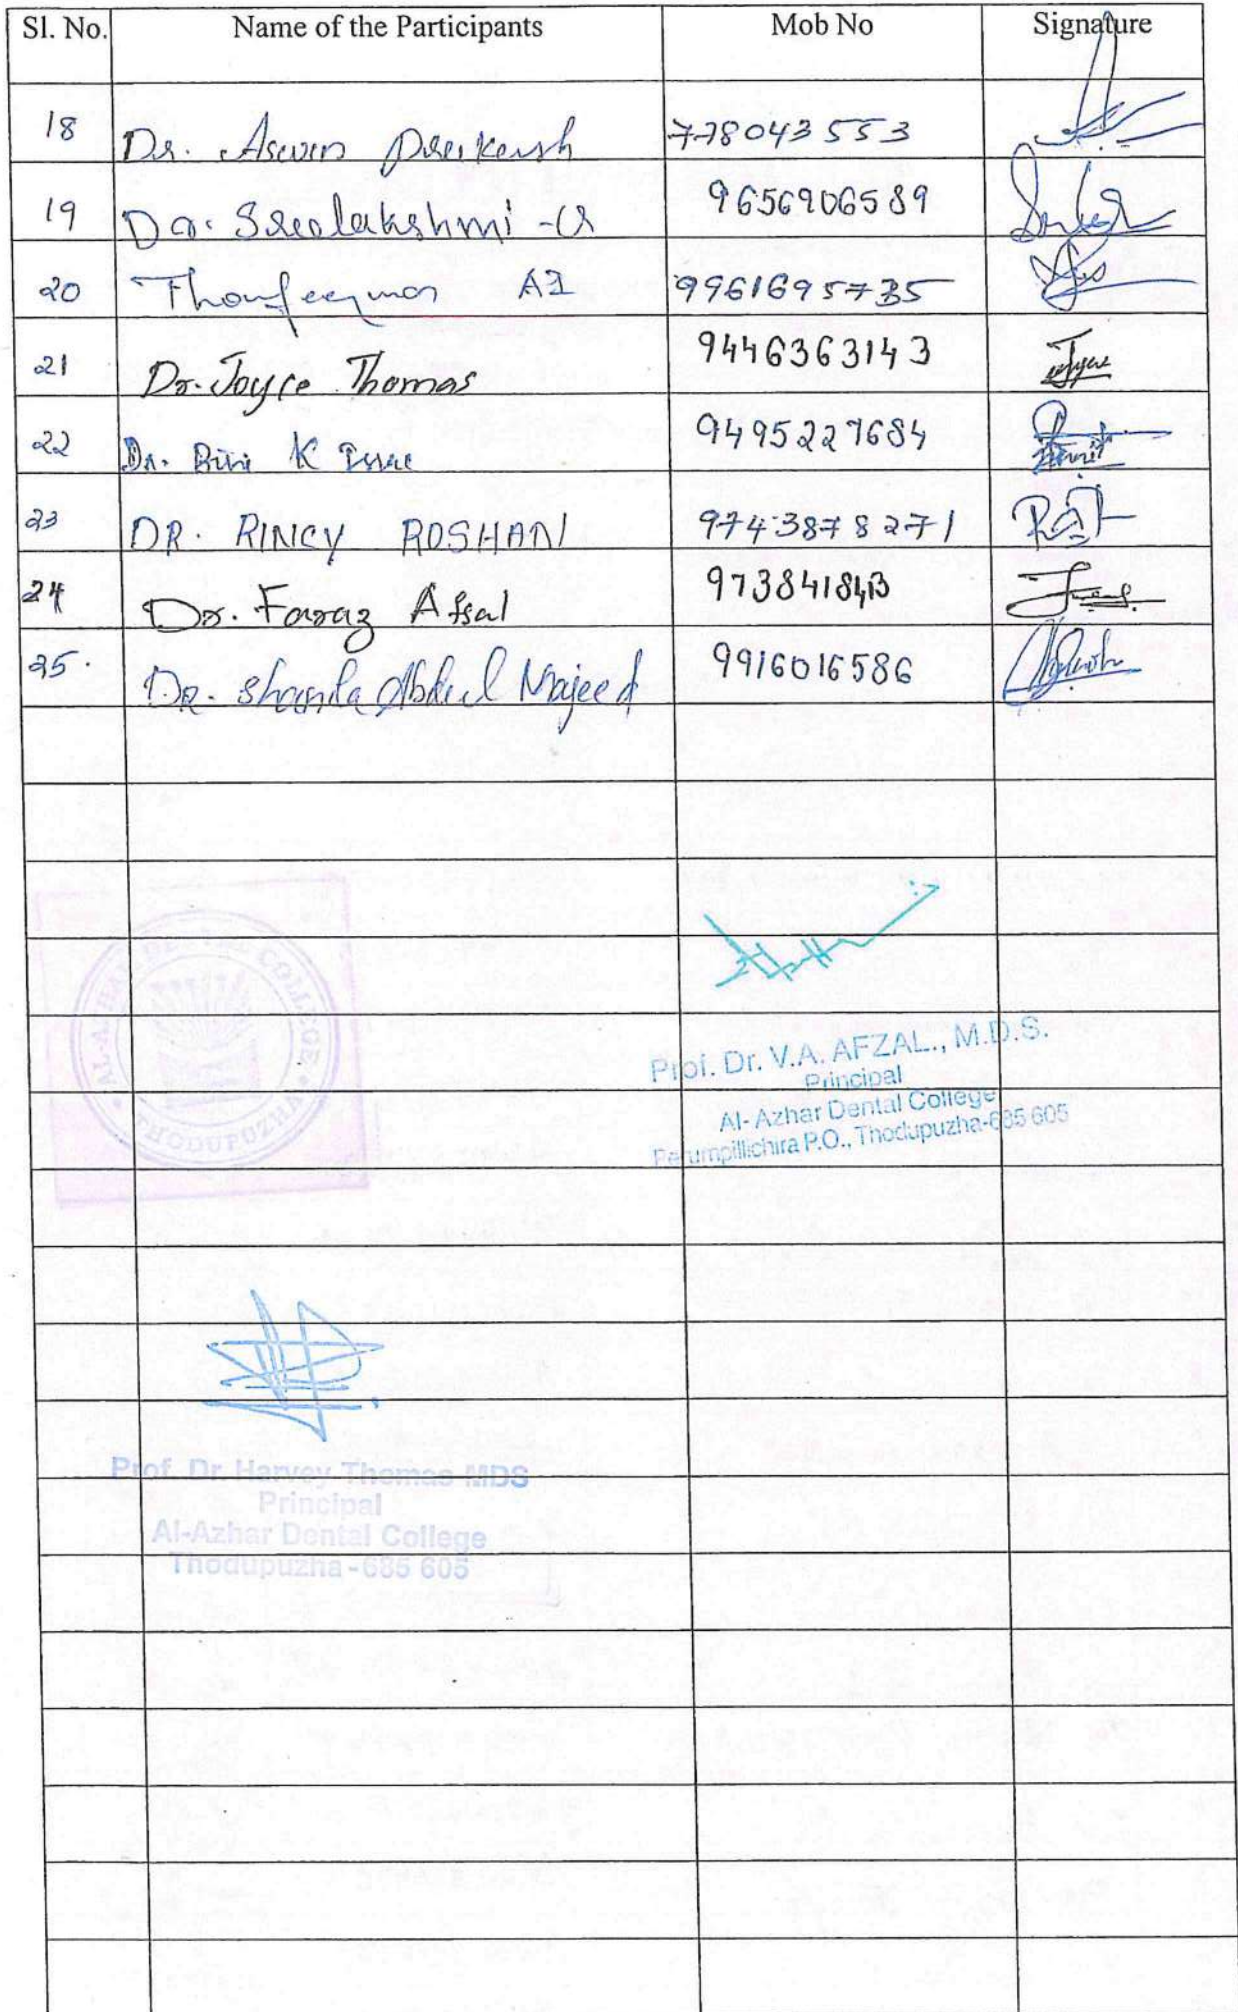 Sl. No. Name of the Participants Mob No Signature
18 Dr. Aswin Preikash 778043553
19 Dr. Sreelakshmi 9656906589
20 Thoufeequnon AI 9961695735
21 Dr. Joyce Thomas 9446363143
22 Dr. Rini K Issac 9495227684
23 DR. RINCY ROSHAN 9743878271
24 Dr. Faraz Afsal
25. Dr. Abdul Majeed 9916016586
AL-AZHAR DENTAL COLLEGE
THODUPUZHA
Prof. Dr. V.A. AFZAL., M.D.S.
Principal
Al- Azhar Dental College
Perumpillichira P.O., Thodupuzha-685 605
Prof. Dr. Harvey Thomas MDS
Principal
Al-Azhar Dental College
Thodupuzha - 685 605